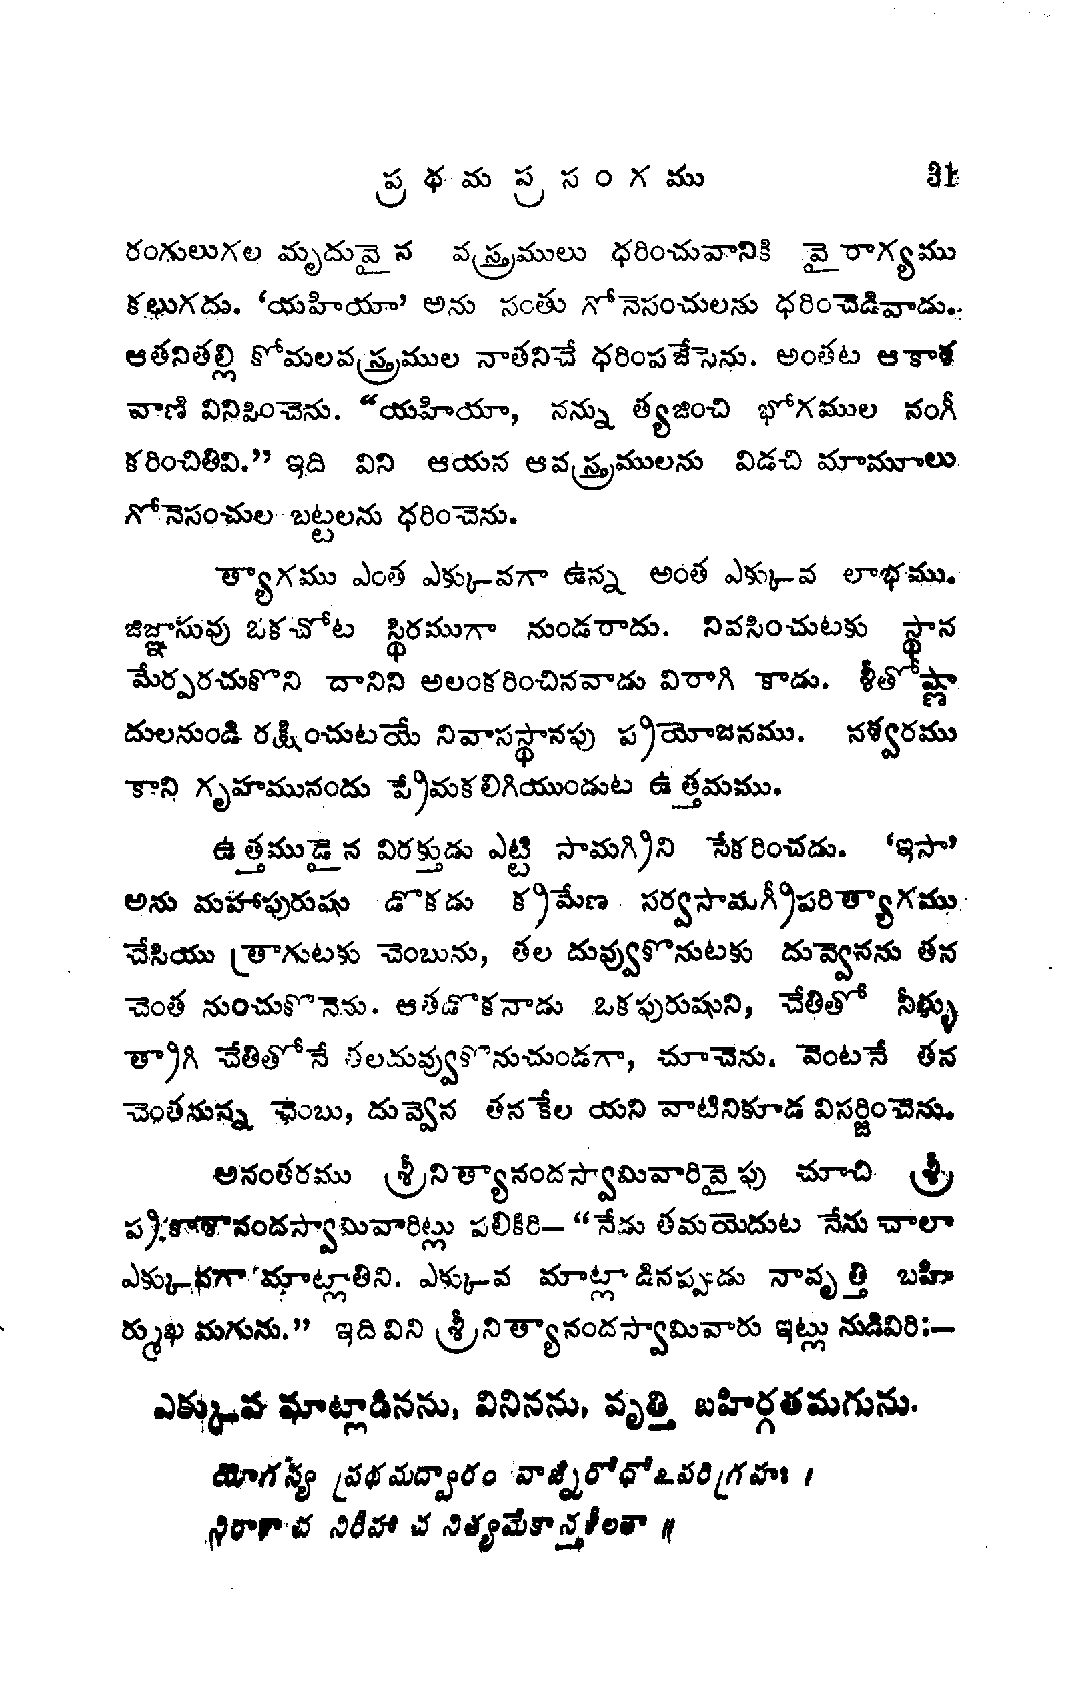 ప్రథమప్రసంగము 31
రంగులుగల మృదువైన వస్త్రములు ధరించువానికి వైరాగ్యము
కలుగదు. ‘యహియా’ అను సంతు గోనెసంచులను ధరించెడివాడు.
ఆతనితల్లి కోమలవస్త్రముల నాతనిచే ధరింపజేసెను. అంతట ఆకాశ
వాణి వినిపించెను. “యహియా, నన్ను త్యజించి భోగముల నంగీ
కరించితివి.” ఇది విని ఆయన ఆవస్త్రములను విడచి మామూలు
గోనెసంచుల బట్టలను ధరించెను.
త్యాగము ఎంత ఎక్కువగా ఉన్న అంత ఎక్కువ లాభము.
జిజ్ఞాసువు ఒకచోట స్థిరముగా నుండరాదు. నివసించుటకు స్థాన
మేర్పరచుకొని దానిని అలంకరించినవాడు విరాగి కాడు. శీతోష్ణా
దులనుండి రక్షించుటయే నివాసస్థానపు ప్రయోజనము. నశ్వరము
కాని గృహమునందు ప్రేమకలిగియుండుట ఉత్తమము.
ఉత్తముడైన విరక్తుడు ఎట్టి సామగ్రిని సేకరించడు. ‘ఇసా’
అను మహాపురుషు డొకడు క్రమేణ సర్వసామగ్రీపరిత్యాగము
చేసియు త్రాగుటకు చెంబును, తల దువ్వుకొనుటకు దువ్వెనను తన
చెంత నుంచుకొనెను. ఆతడొకనాడు ఒకపురుషుని, చేతితో నీళ్ళు
త్రాగి చేతితోనే తలదువ్వుకొనుచుండగా, చూచెను. వెంటనే తన
చెంతనున్న చెంబు, దువ్వెన తనకేల యని వాటినికూడ విసర్జించెను.
అనంతరము శ్రీనిత్యానందస్వామివారివైపు చూచి శ్రీ
ప్రకాశానందస్వామివారిట్లు పలికిరి— “నేడు తమయెదుట నేను చాలా
ఎక్కువగా మాట్లాతిని. ఎక్కువ మాట్లాడినప్పుడు నావృత్తి బహి
ర్ముఖ మగును.” ఇది విని శ్రీనిత్యానందస్వామివారు ఇట్లు నుడివిరి:—
ఎక్కువ మాట్లాడినను, వినినను, వృత్తి బహిర్గతమగును.
యోగస్య ప్రథమద్వారం వాఙ్నిరోధోఽపరిగ్రహః ।
నిరాశా చ నిరీహా చ నిత్యమేకాన్తశీలతా ॥